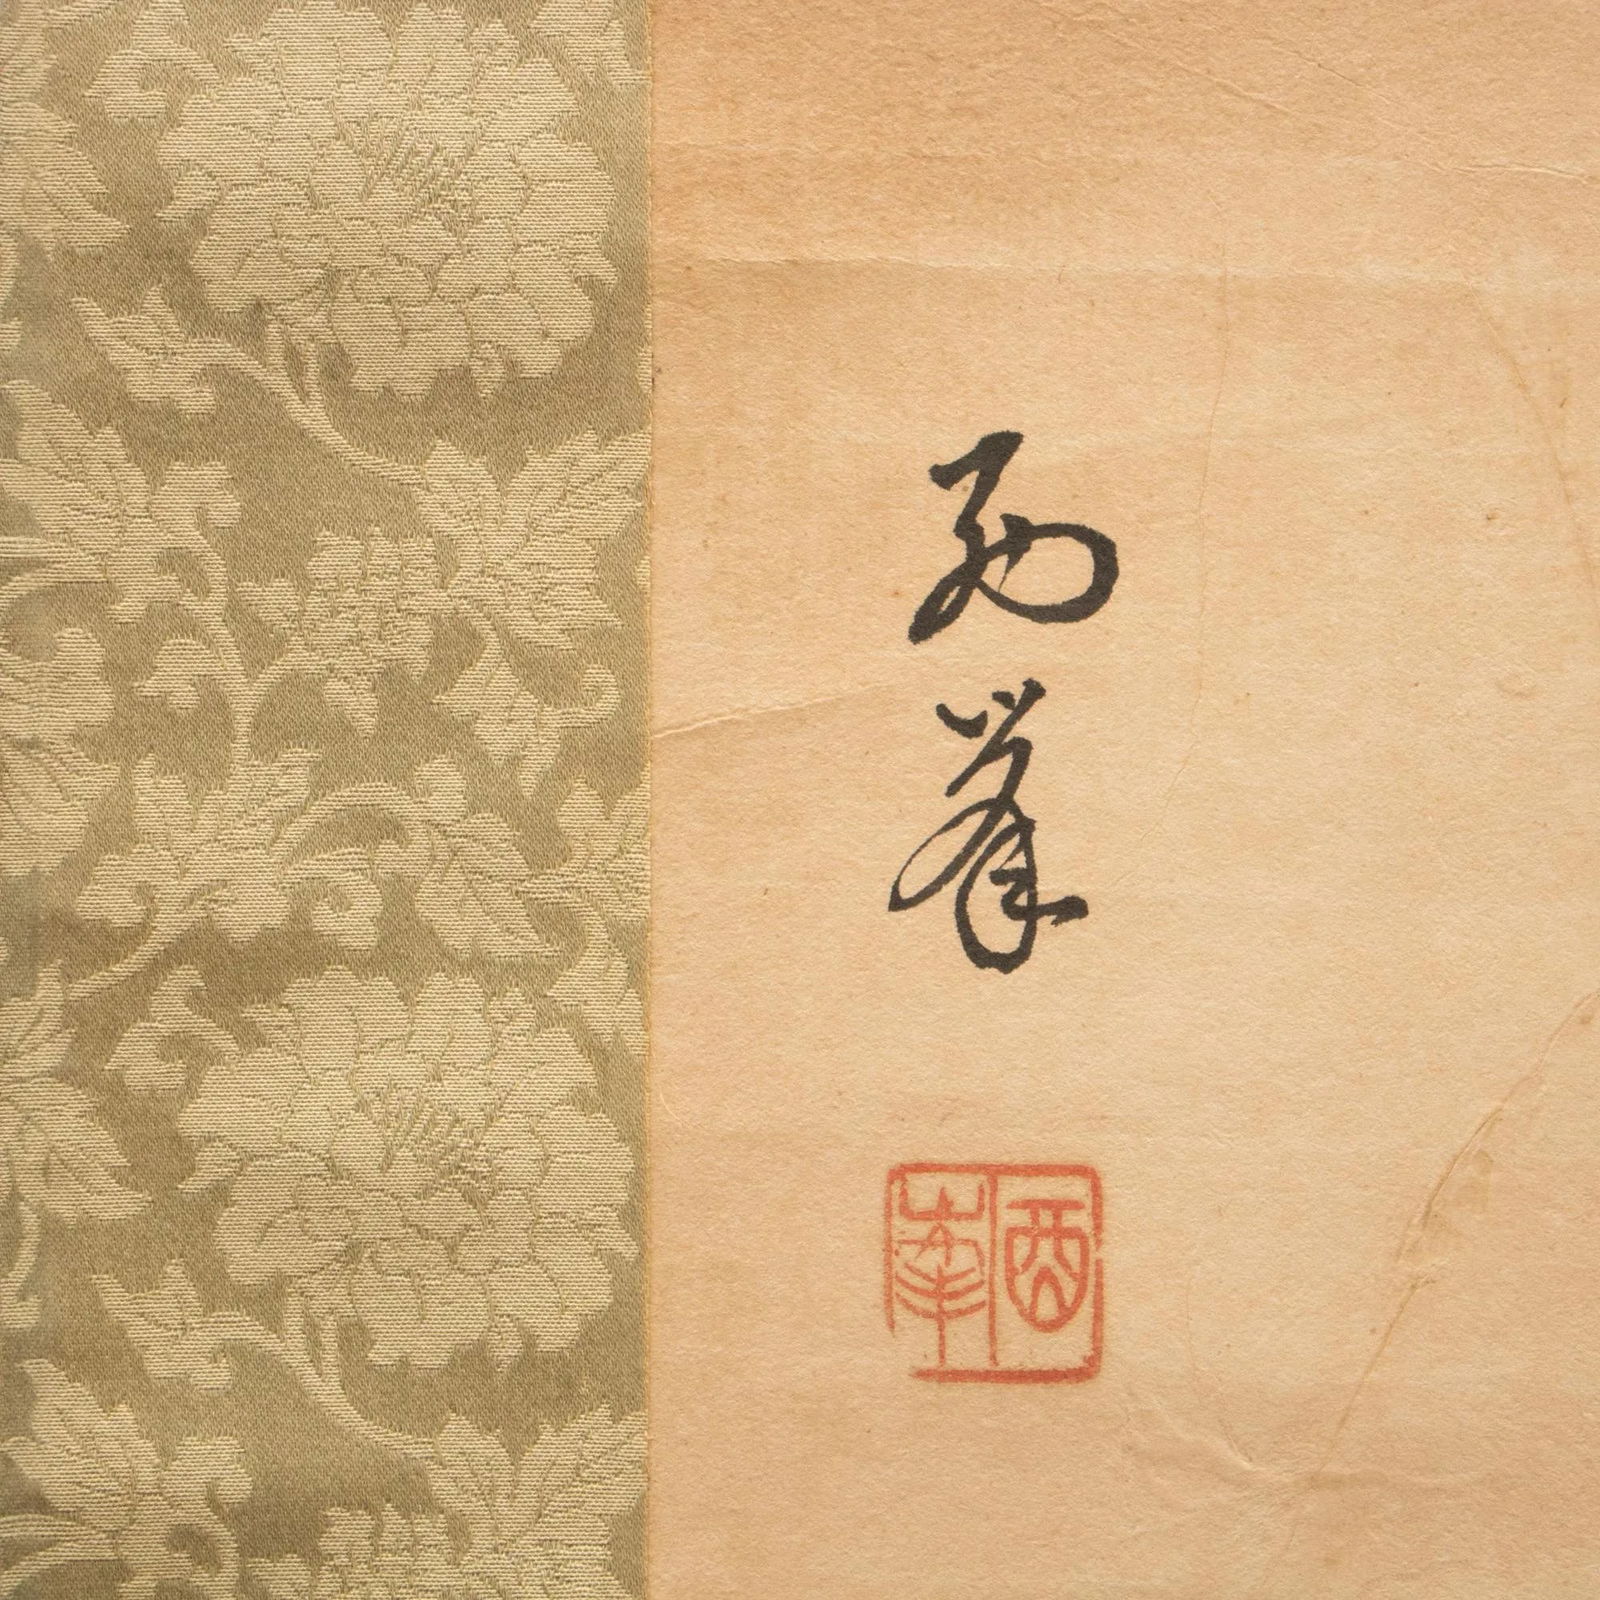 西峯
西峯